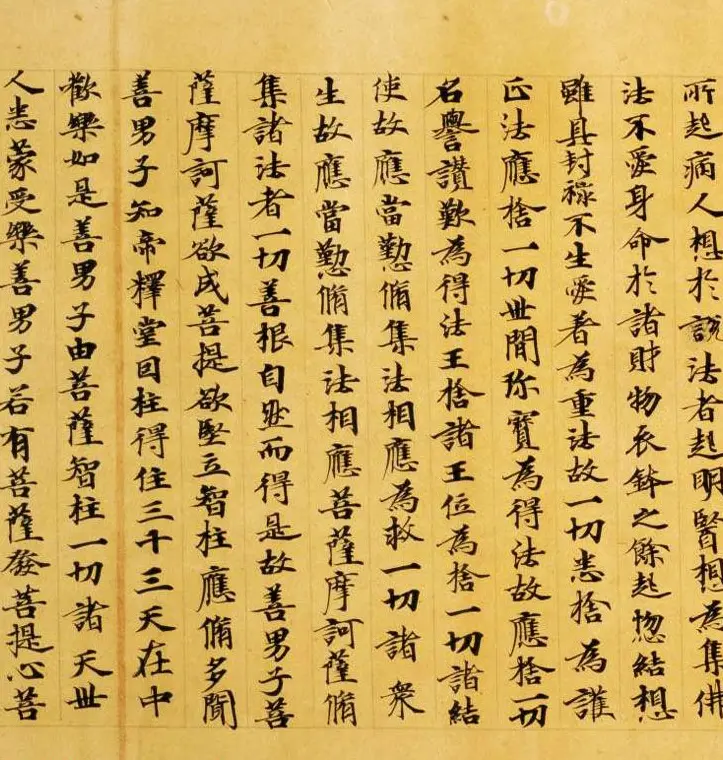 所起病人想於說法者起明賢想為集佛
法不愛身命於諸財物衣鉢之餘起怨結想
雖具封祿不生愛著為重法故一切悉捨為護
正法應捨一切世間珎寶為得法故應捨一切
名譽讚歎為得法王捨諸王位為捨一切諸結
使故應當懃脩集法相應為救一切諸衆
生故應當懃脩集法相應菩薩摩訶薩脩
集諸法者一切善根自然而得是故善男子菩
薩摩訶薩欲成菩提欲堅立智柱應脩多聞
善男子知帝釋堂因柱得住三十三天在中
歡樂如是善男子由菩薩智柱一切諸天世
人悉蒙受樂善男子若有菩薩發菩提心菩